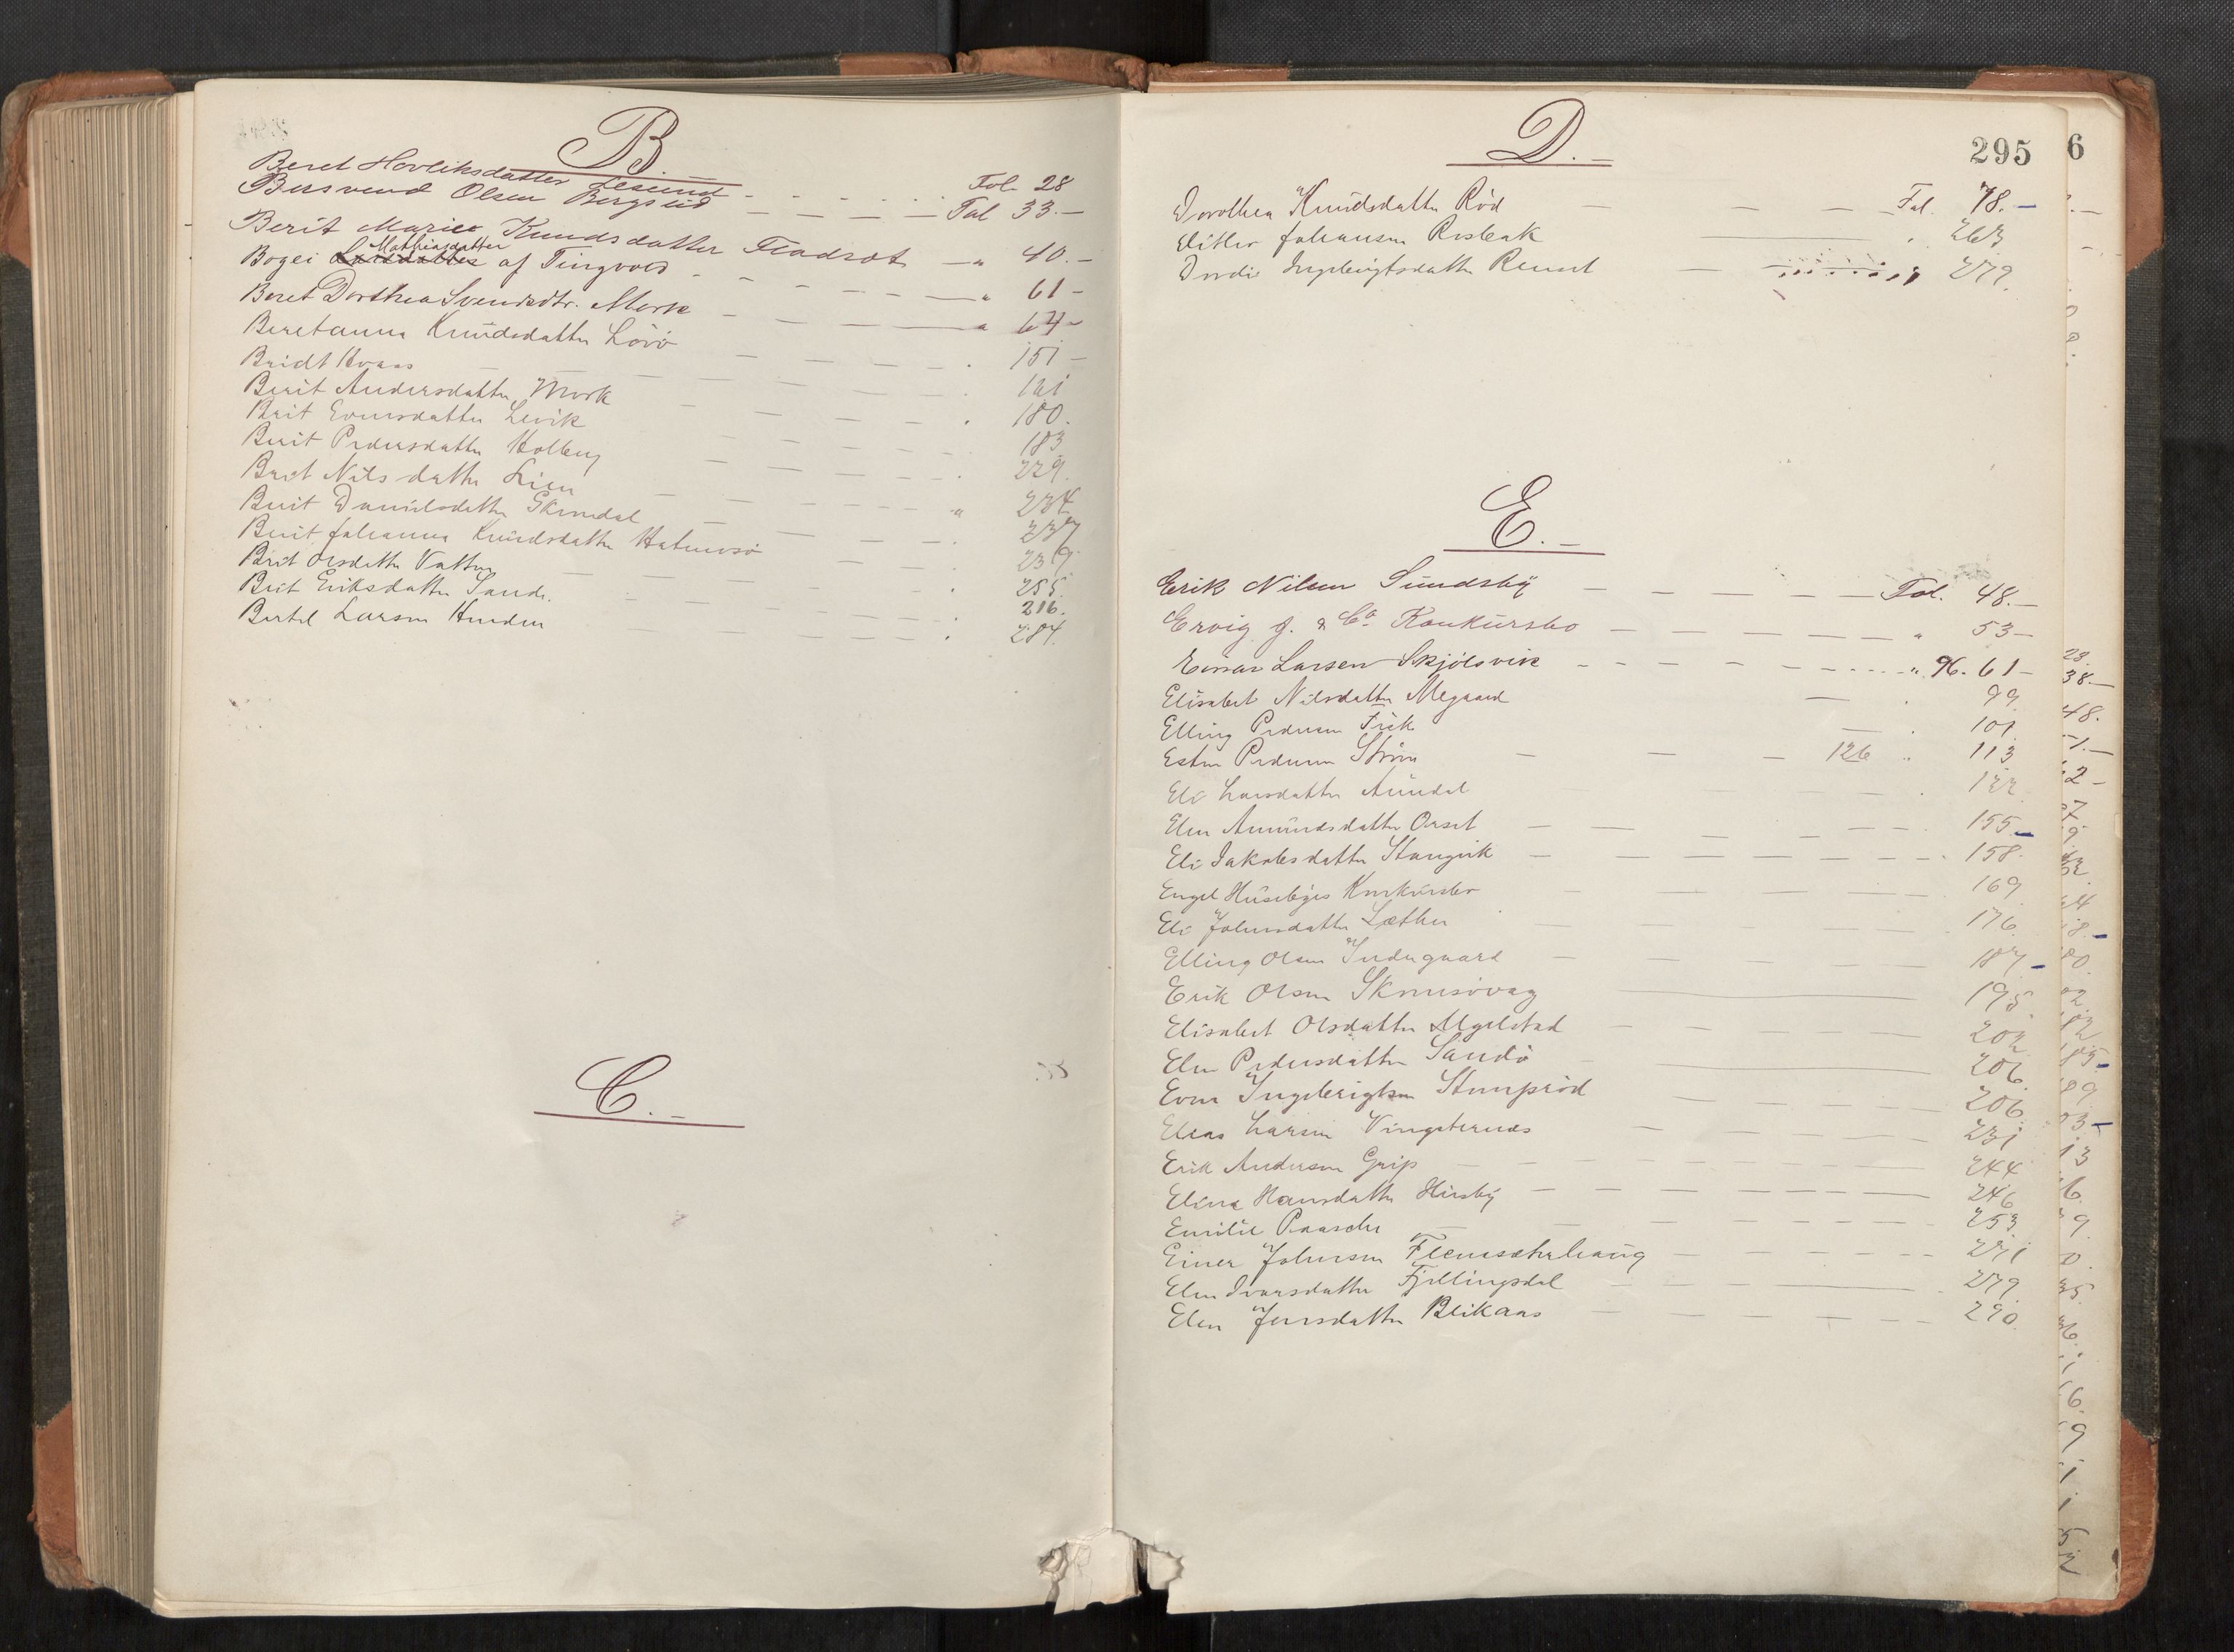 B.
Beret Hovliksdatter Lesund Fol. 28
Businund Olsen Bergslid Fol 33.—
Berit Marie Knudsdatter Fladsæt „ 40.—
Mathiasdatter
Bogei af Tingvold 61—
Beret Dorthea Svendsdtr. Mork „ 64—
Beretanna Knudsdatter Lövö 151—
Bridt Kvaas 161
Berit Andersdatter Mork 180.
Brit Evensdatter Levik 183
Berit Pedersdatter Holberg 229.
Brit Nilsdatter Lien 234
Berit Danielsdatter Skrondal 237
Berit Johanna Knudsdatter 239.
Brit Olsdatter Vatten 255.
Brit Eriksdatter Sande. 216.
Bertel Larsen Henden 284.
C.
295
D.
Dorothea Knudsdatter Röd Fol. 78.—
Ditlev Johansen Rosbak 263
Dordi Ingebrigtsdatter Renset 279.
E.
Erik Nilsen Sundsby Fol. 48.—
Ervig J. & Co. Konkursbo „ 53—
Einar Larsen Skjölsvik „ 96. 61—
Elisabet Nilsdatter Megaard 99.
Elling Pedersen Frik 101
Esten Pedersen Ström 126 113
Eli Larsdatter Aündal 122
Elen Amundsdatter Orset 155.—
Eli Jakobsdatter Stangvik 158.
Engel Husebyes Konkursbo 169
Eli Johnsdatter Læthen 176.
Elling Olsen Indergaard 187—
Erik Olsen Skonsövag 195
Elisabet Olsdatter Megelstad 202
Elen Pedersdatter Sandö 206.
Even Ingebrigtsen Stompröd 206.
Elias Larsen 231
Erik Andersen Grip 244
Elina Hansdatter Husby 246
Emilie Paasche 253
Einer Johnsen Flemsæterhaug 271
Elen Ivarsdatter Fjellingsdal 279.
Elen Jensdatter Blikaas 290.
6